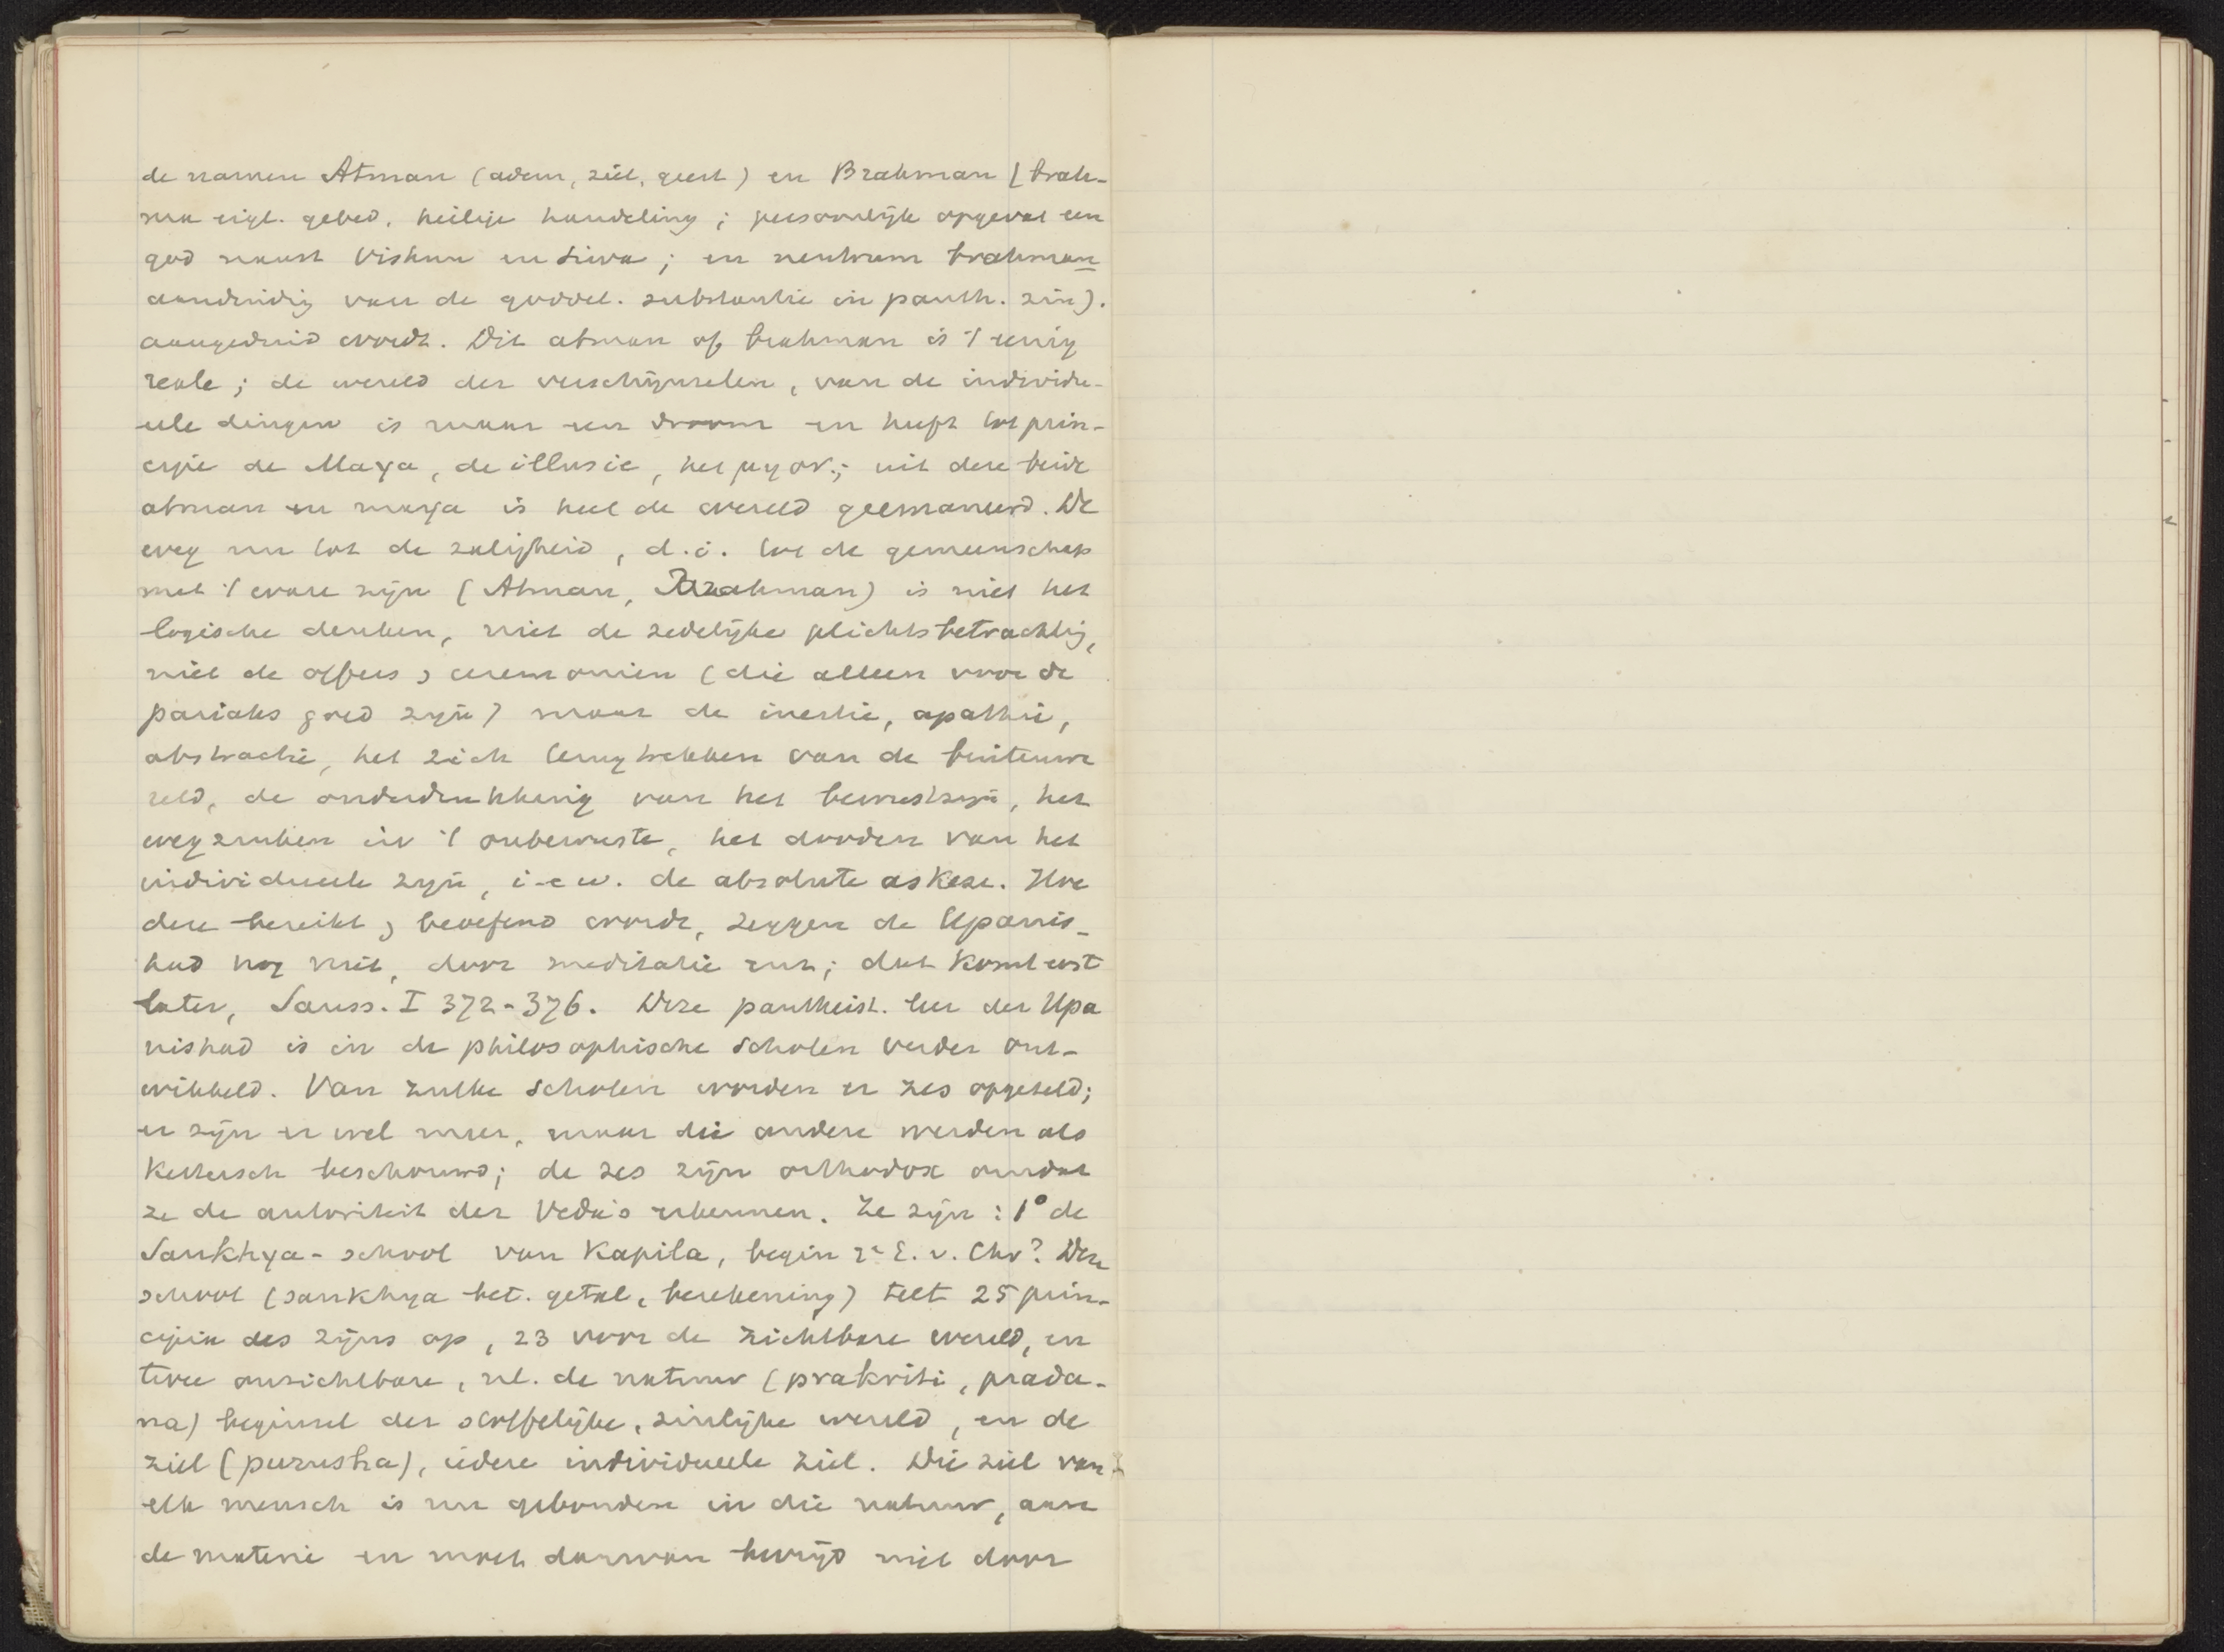 de namen Atman (adem, ziel, geest) en Brahman (brah-
ma eigl. gebed, heilige handeling; persoonlijk opgevat een
god naast Vishnu en Siva; en neutrum brahman
aanduidig van de goddel. substantie in panth. zin).
aangeduid wordt. Dit atman of brahman is 't eenig
reale; de wereld der verschijnselen, van de individu-
eele dingen is maar een droom en heeft tot prin-
cipie de Maya, de illusie, het μη ον.; uit deze beide
atman en maya is heel de wereld geemaneerd. De
weg nu tot de zaligheid, d.i. tot de gemeenschap
met 't ware zijn (Atman, Brahman) is niet het
logische denken, niet de zedelijke plichtsbetrachtig,
niet de offers & ceremonien (die alleen voor de
pariahs goed zijn) maar de inertie, apathie,
abstractie, het zich terugtrekken van de buitenwe
reld, de onderdrukkenig van het bewustzijn, het
wegzinken in 't onbewuste, het dooden van het
individueele zijn, i-e w. de absolute askese. Hoe
deze bereikt & beoefend wordt, zeggen de Upanis-
had nog niet, door meditatie enz; dat komt eerst
later, Sauss. I 372-376. Deze pantheist. leer der Upa
nishad is in de philosophische scholen verder ont-
wikkeld. Van zulke scholen worden er zes opgeteld;
er zijn er wel meer, maar die andere werden als
kettersch beschouwd; de zes zijn orthodox omdat
ze de autoriteit der Veda's erkennen. Ze zijn: 1° de
Sankhya-school van Kapila, begin 2e E. v. Chr? Deze
school (sankhya bet. getal, berekening) telt 25 prin-
cipien des zijns op, 23 voor de zichtbare wereld, en
twee onzichtbare, nl. de natuur (prakriti, prada-
na) beginsel der stoffelijke, zinlijke wereld, en de
ziel (purusha), iedere individueele ziel. Die ziel van
elk mensch is nu gebonden in die natuur, aan
de materie en moet daarvan bevrijd niet door